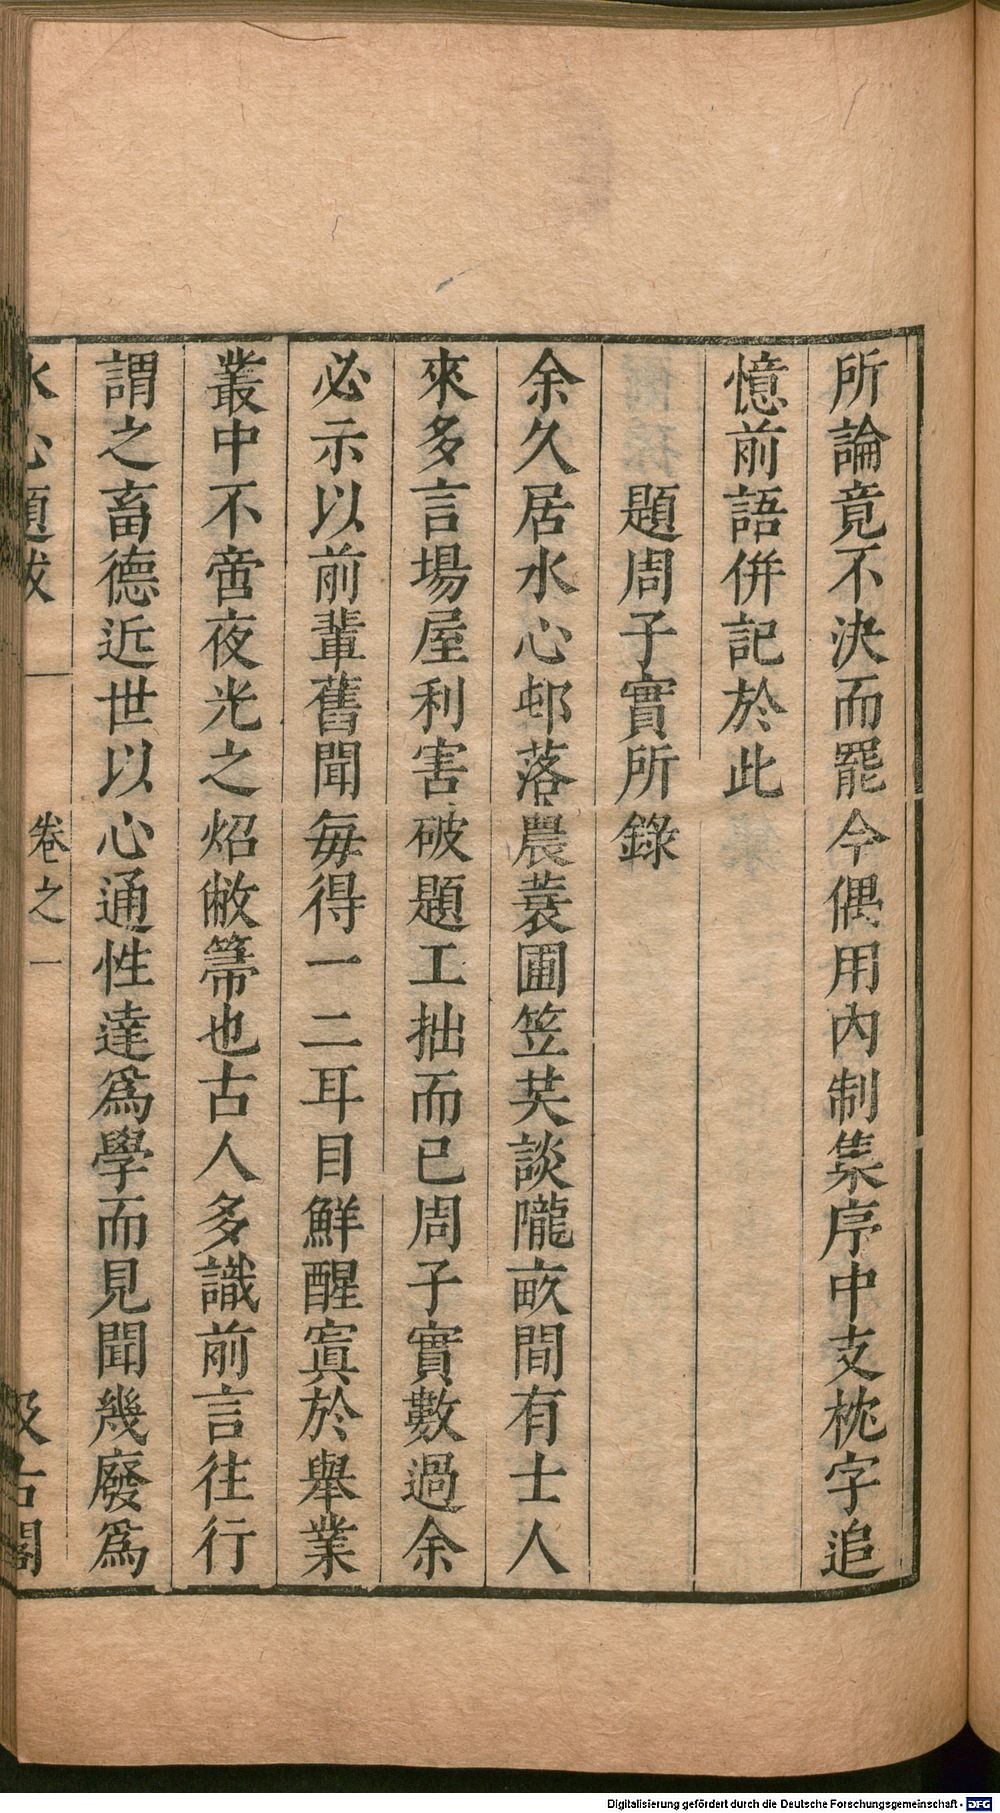 所論竟不決而罷今偶用內制集序中支枕字追
憶前語併記於此
題周子實所錄
余久居水心邨落農蓑圃笠共談隴畝間有士人
來多言場屋利害破題工拙而已周子實數過余
必示以前輩舊聞每得一二耳目鮮醒寘於舉業
叢中不啻夜光之炤敝箒也古人多識前言往行
謂之畜德近世以心通性達為學而見聞幾廢為
水心題跋
卷之一
汲古閣
Digitalisierung gefördert durch die Deutsche Forschungsgemeinschaft - DFG